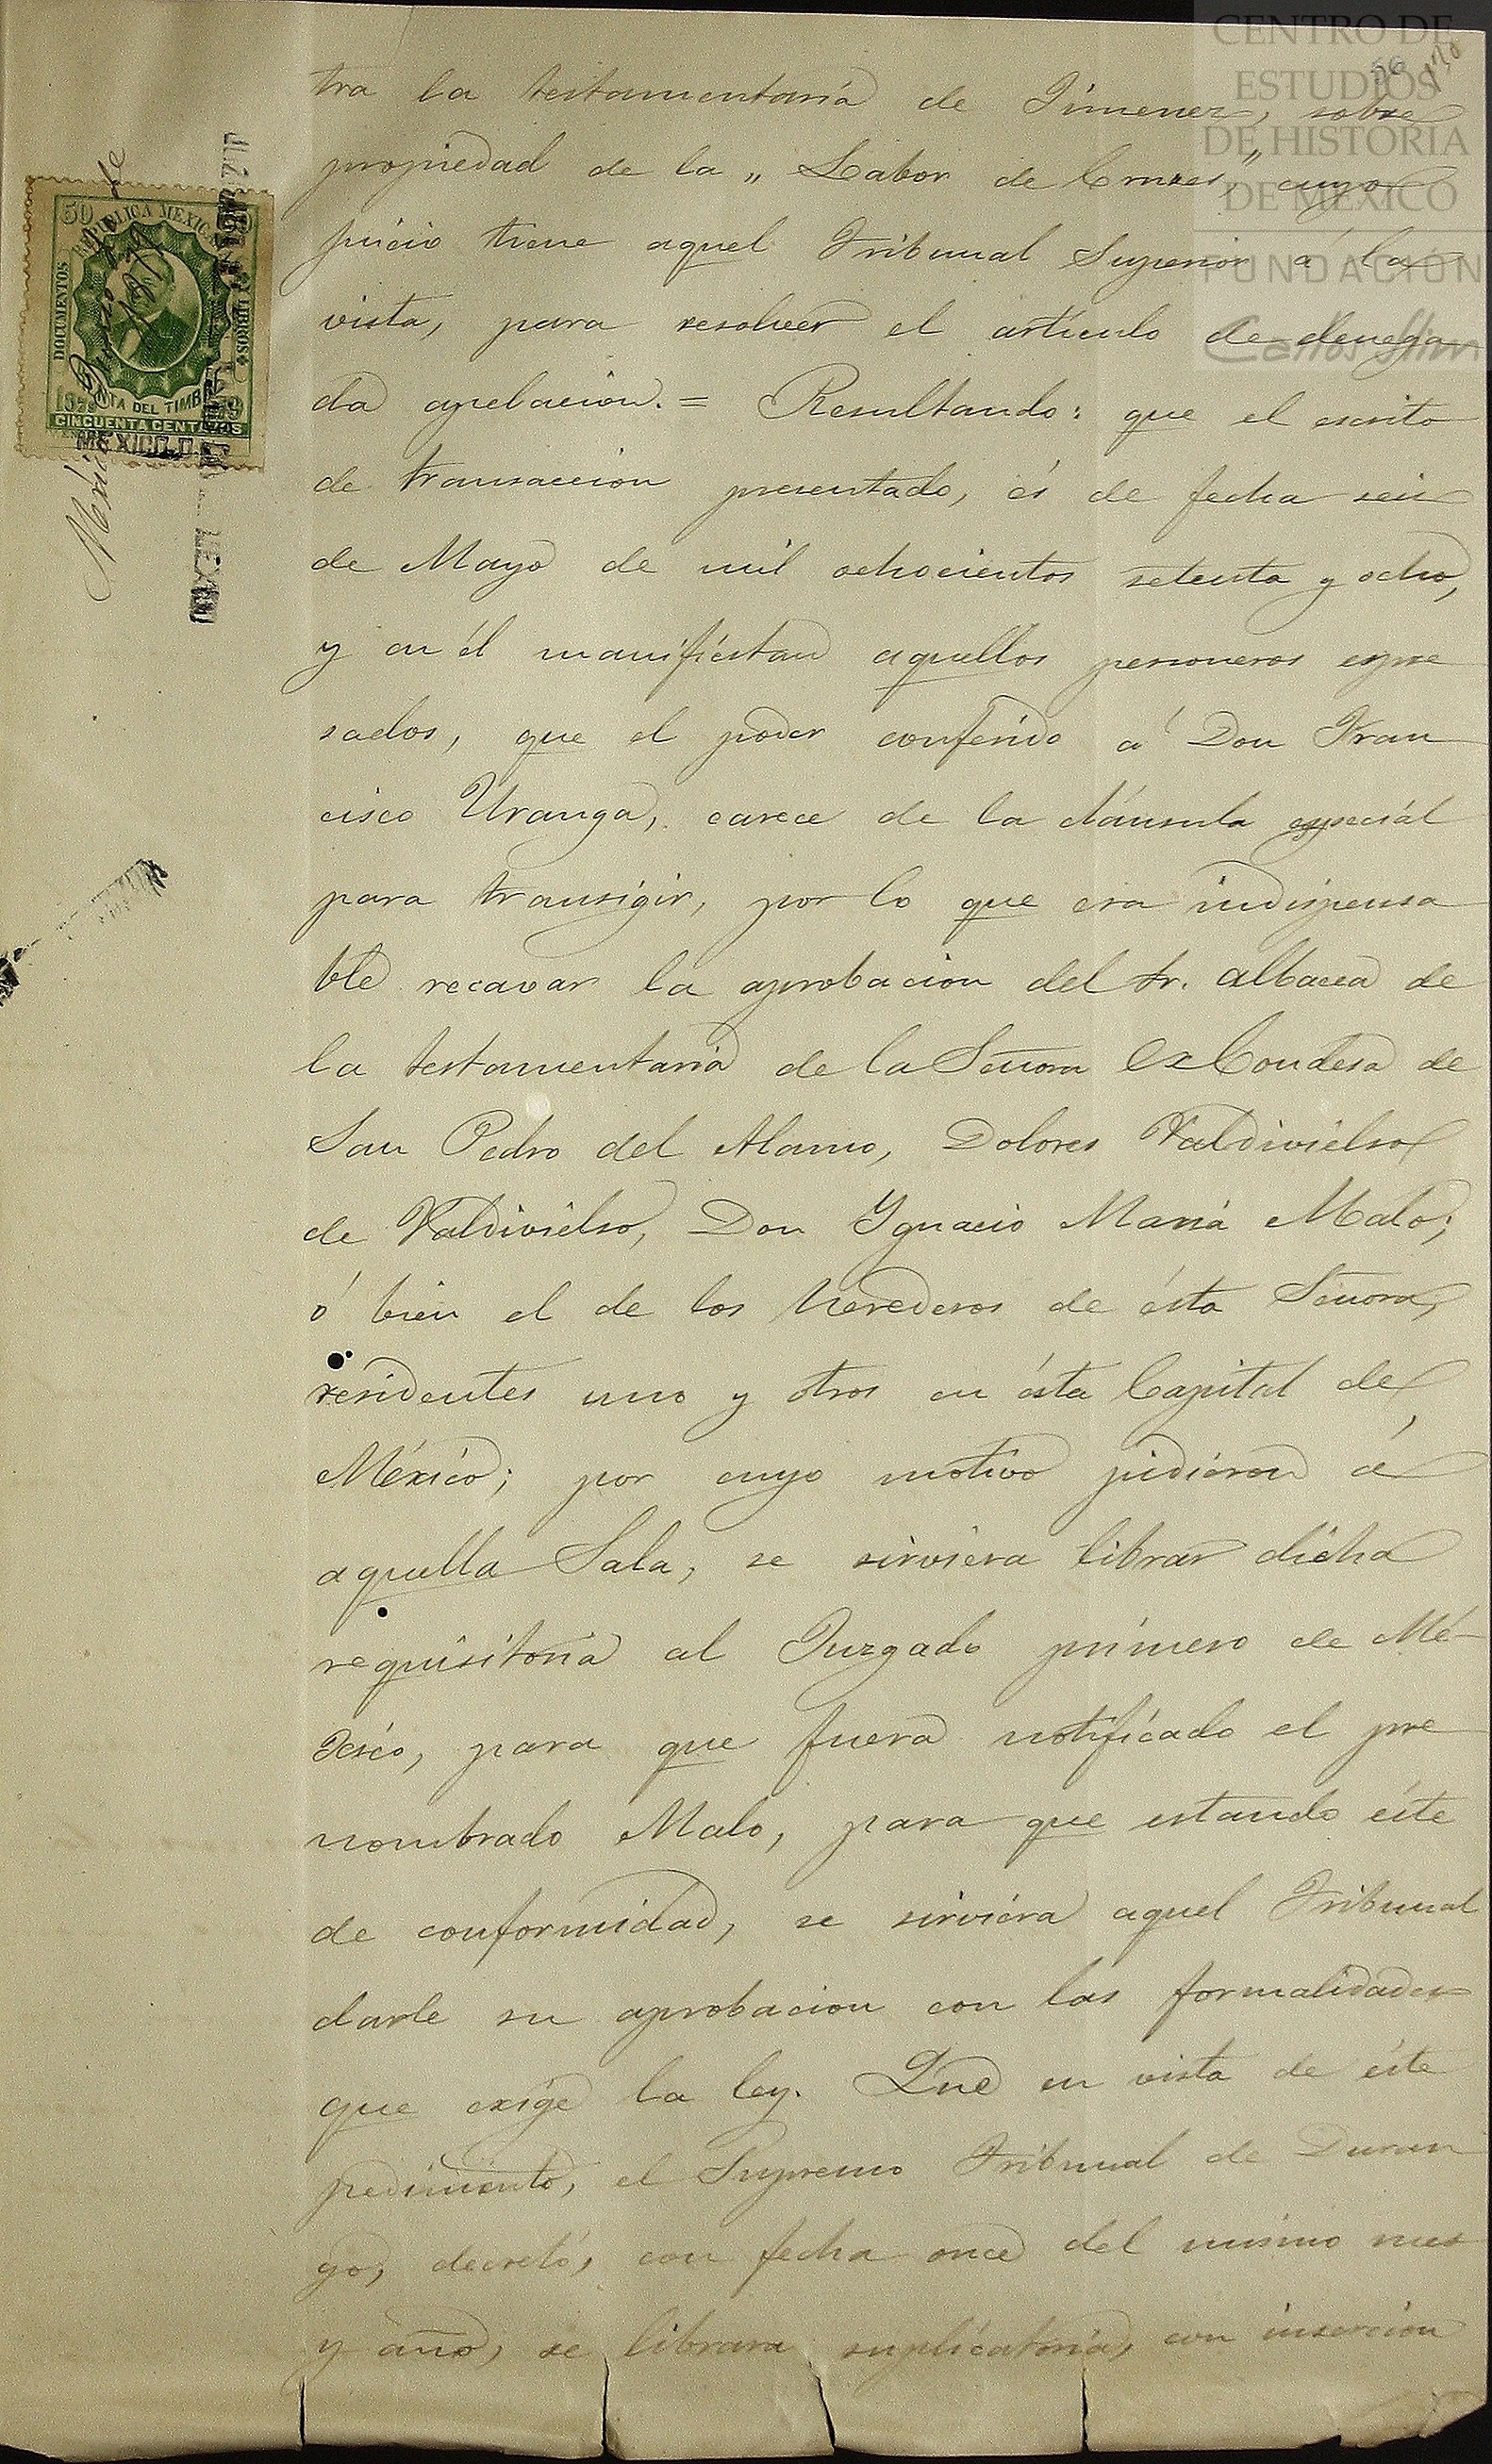 CENTRO DE
ESTUDIOS
DE HISTORIA
DE MÉXICO
FUNDACIÓN
Carlos Slim
56
tra la testamentaría de Jimenez, sobre
propiedad de la „ Labor de Cruces," cuyo
juicio tiene aquel Tribunal Superior á la
vista, para resolver el artículo de denega
da apelacion. = Resultando: que el escrito
de transaccion presentado, és de fecha seis
de Mayo de mil ochocientos setenta y ocho,
y en él manifiéstan aquellos personeros espre
sados, que el poder conferido á Don Fran
cisco Uranga, carece de la cláusula especiál
para transigir, por lo que era indispensa
ble recavar la aprobacion del Sr. albacea de
la testamentaria de la Señora Ex Condesa de
San Pedro del Alamo, Dolores Valdivielso
de Valdivielso, Don Ygnacio María Malo;
ó bien el de los herederos de ésta Señora,
residentes uno y otros en ésta Capital de
México; por cuyo motivo pidiéron á
aquella Sala, se sirviera librar dicha
requisitoria al Juzgado primero de Mé-
xico, para que fuera notificado el pre
nombrado Malo, para que estando éste
de conformidad, se sirviéra aquel Tribunal
darle su aprobacion con las formalidades
que exige la ley. Que en vista de éste
pedimiento, el Supremo Tribunal de Duran
go, decretó, con fecha once del mismo mes
y año, se librara suplicatoria, con insercion
50
REPUBLICA MEXICANA
DOCUMENTOS
Y LIBROS
RENTA DEL TIMBRE
1879
CINCUENTA CENTAVOS
MEXICO.D.